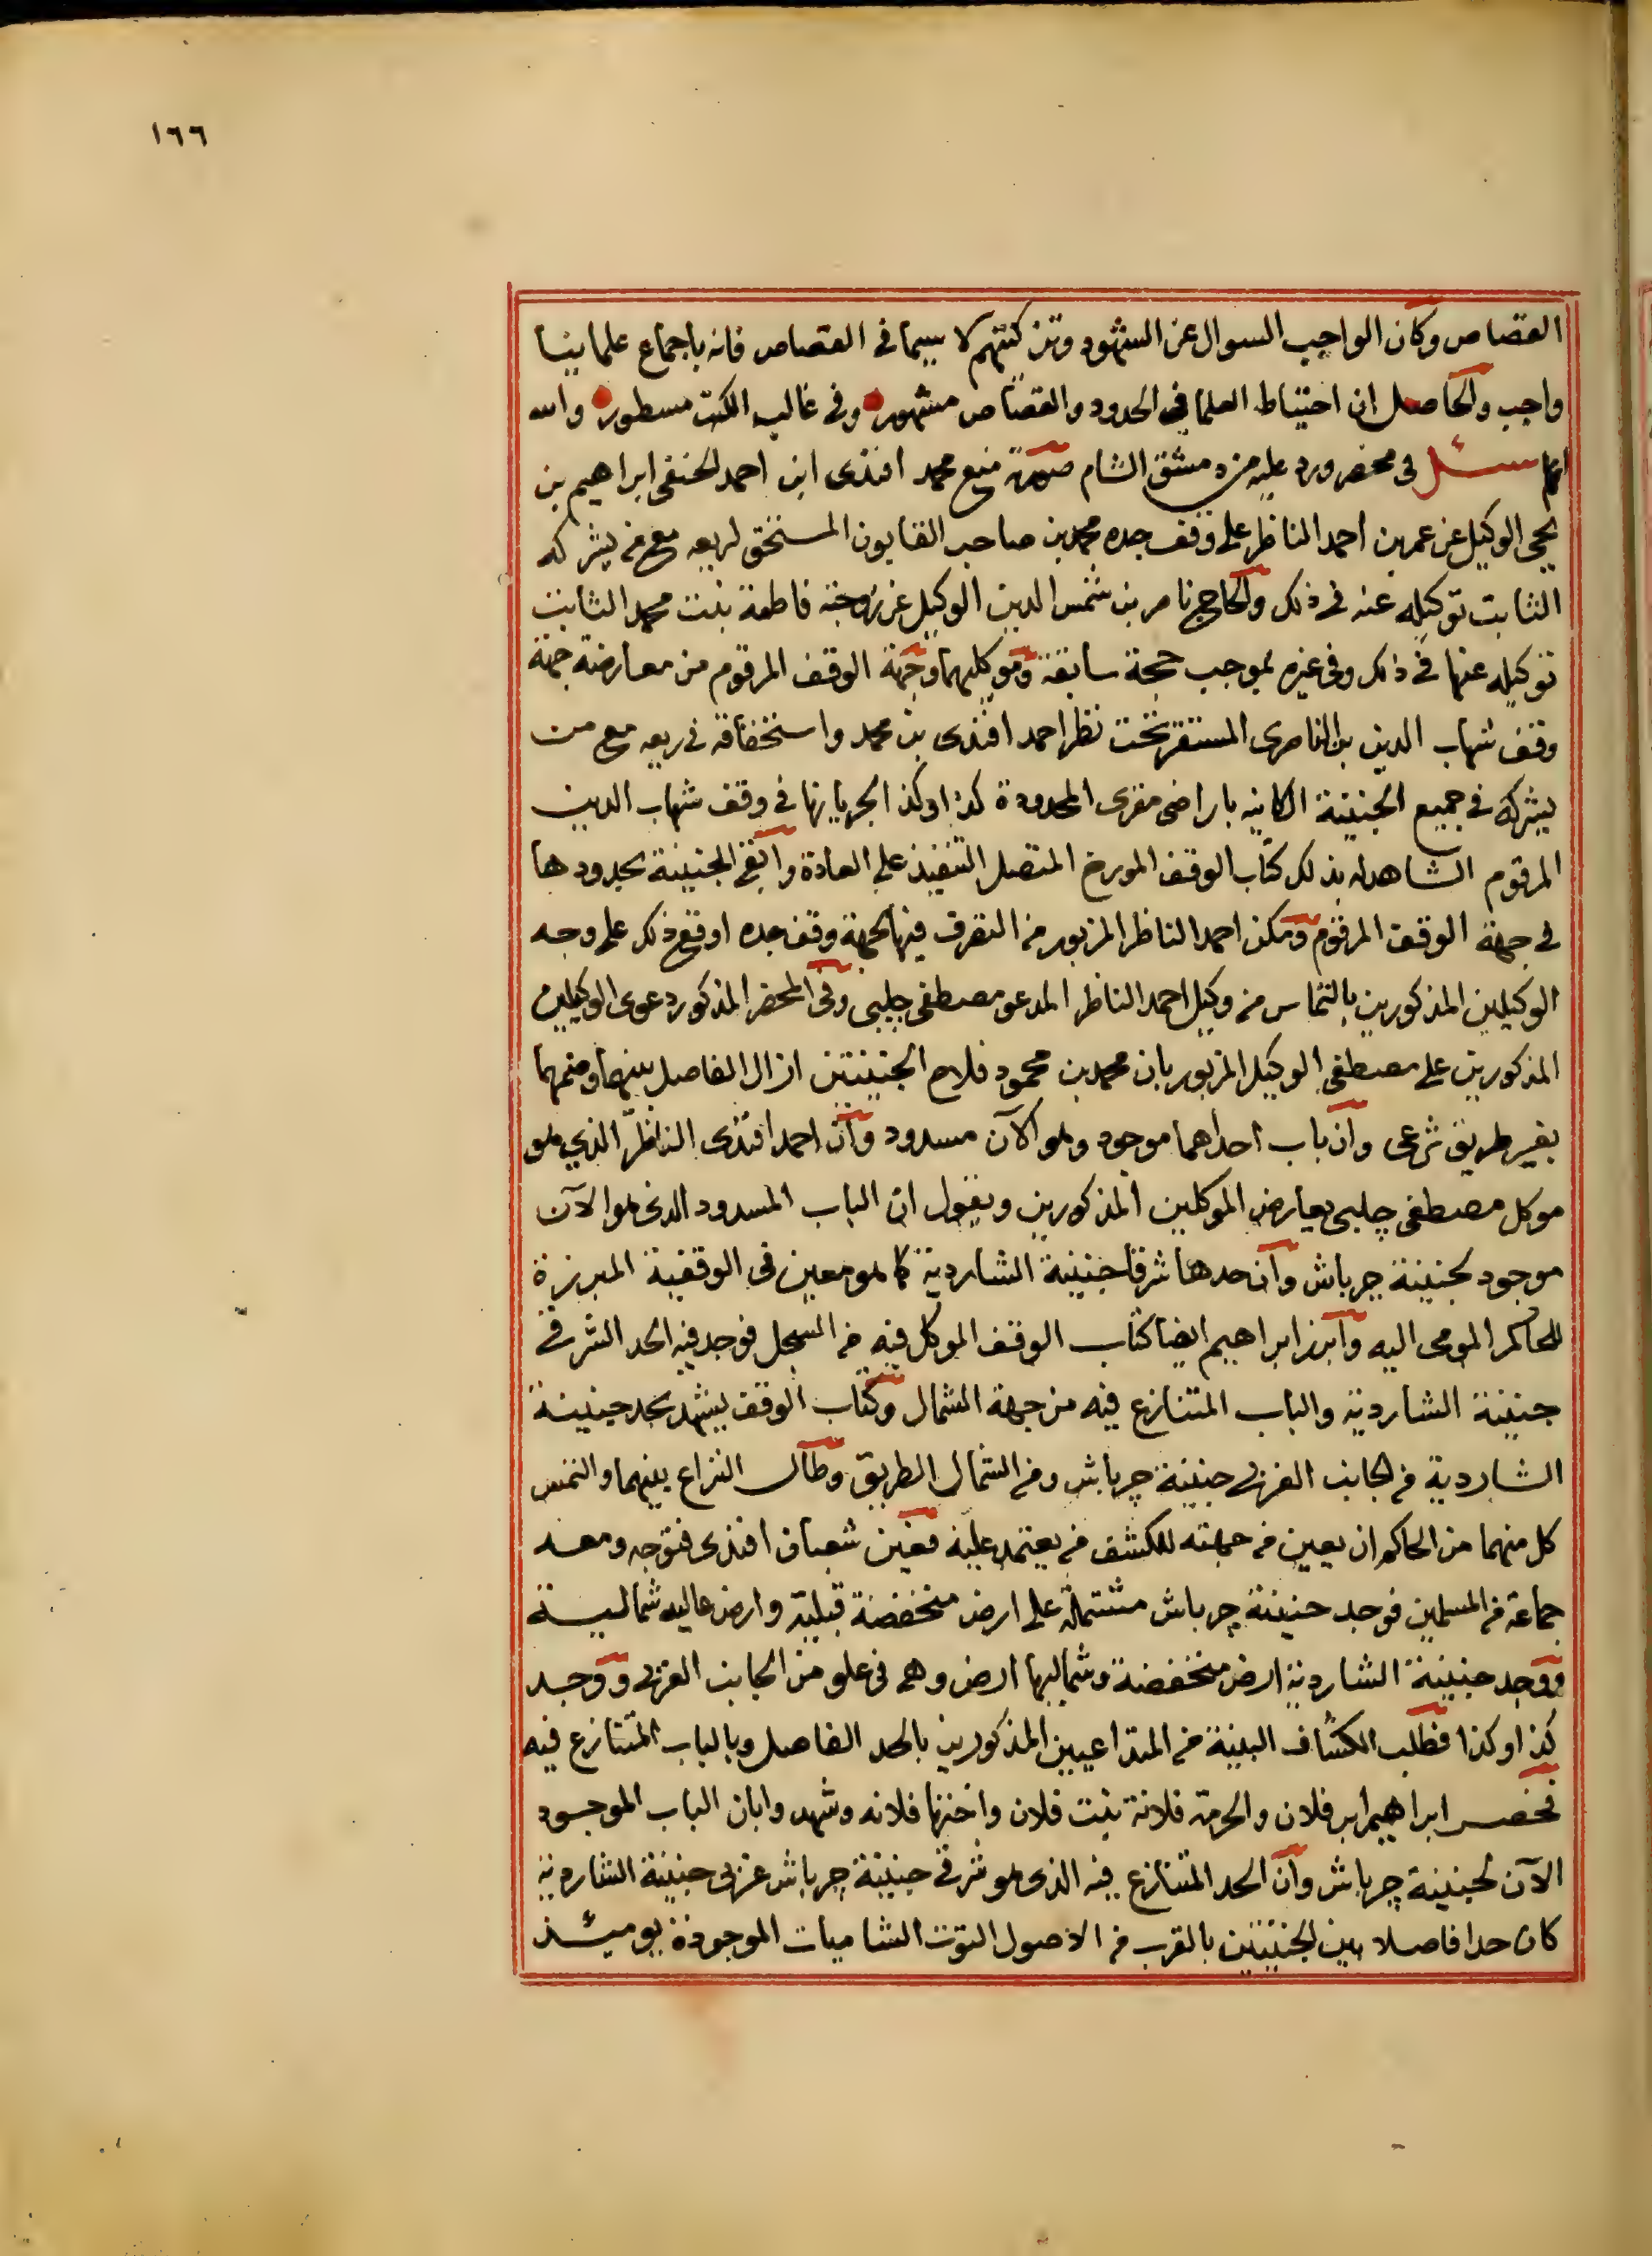 ١٦٦
القصاص وكان الواجب السوال عن الشهود وتزكيتهم لا سيما في القصاص فانه باجماع علماينا
واجب والحاصل ان احتياط العلما في الحدود والقصاص مشهور وفي غالب الكتب مسطور والله
اعلم سئل في محضر ورد عليه من دمشق الشام صورته منع محمد افندى ابن احمد الحنفى ابراهيم بن
يحيى الوكيل عن عمر بن احمد الناظر على وقف جده محمد بن صاحب القابون المستحق لريعه مع من يشركه
الثابت توكيله عنه في ذلك والحاج ناصر بن شمس الدين الوكيل عن زوجته فاطمة بنت محمد الثابت
توكيله عنها في ذلك وفي غيره بموجب حجة سابقة وموكليهما وجهة الوقف المرقوم من معارضة جهة
وقف شهاب الدين بن الناصرى المستقر تحت نظر احمد افندى بن محمد واستحقاقه في ريعه مع من
يشركه في جميع الجنينة الكاينه باراضى مقرى المحدودة كذا وكذا لجريانها في وقف شهاب الدين
المرقوم الشاهد له بذلك كتاب الوقف المورخ المتصل التنفيذ على العادة وابقى الجنينة بحدودها
في جهة الوقف المرقوم ومكن احمد الناظر المزبور من التصرف فيها لجهة وقف جده اوقع ذلك على وجه
الوكيلين المذكورين بالتماس من وكيل احمد الناظر المدعو مصطفى چلبى وفى المحضر المذكور دعوى الوكيلين
المذكورين على مصطفى الوكيل المزبور بان محمد بن محمود فلاح الجنينتين ازال الفاصل بينهما وضمهما
بغير طريق شرعى وان باب احداهما موجود وهو الآن مسدود وان احمد افندى الناظر الذي هو
موكل مصطفى چلبى يعارض الموكلين المذكورين ويقول ان الباب المسدود الذى هو الآن
موجود لجنينة چرباش وان حدها شرقا جنينة الشاردية كما هو معين فى الوقفية المبرزة
للحاكم المومى اليه وابرز ابراهيم ايضا كتاب الوقف الموكل فيه من السجل فوجد فيه الحد الشرقى
جنينة الشاردية والباب المتنازع فيه من جهة الشمال وكتاب الوقف يشهد بحد جنينة
الشاردية من الجانب الغربى جنينة چرباش ومن الشمال الطريق وطال النزاع بينهما والتمس
كل منهما من الحاكم ان يعين من جهته للكشف من يعتمد عليه فعين شعبان افندى فتوجه ومعه
جماعة من المسلمين فوجد جنينة چرباش مشتملة على ارض منخفضة قبلية وارض عاليه شمالية
ووجد جنينة الشاردية ارض منخفضة وشماليها ارض وهى فى علو من الجانب الغربى ووجد
كذا وكذا فطلب الكشاف البينة من المتداعيين المذكورين بالحد الفاصل وبالباب المتنازع فيه
فحضر ابراهيم ابن فلان والحرمة فلانة بنت فلان واختها فلانه وشهدوا بان الباب الموجود
الآن لجنينة چرباش وان الحد المتنازع فيه الذى هو شرقى جنينة چرباش غربى جنينة الشاردية
كان حدا فاصلا بين الجنينتين بالقرب من الاصول التوت الشاميات الموجودة يوميئذ